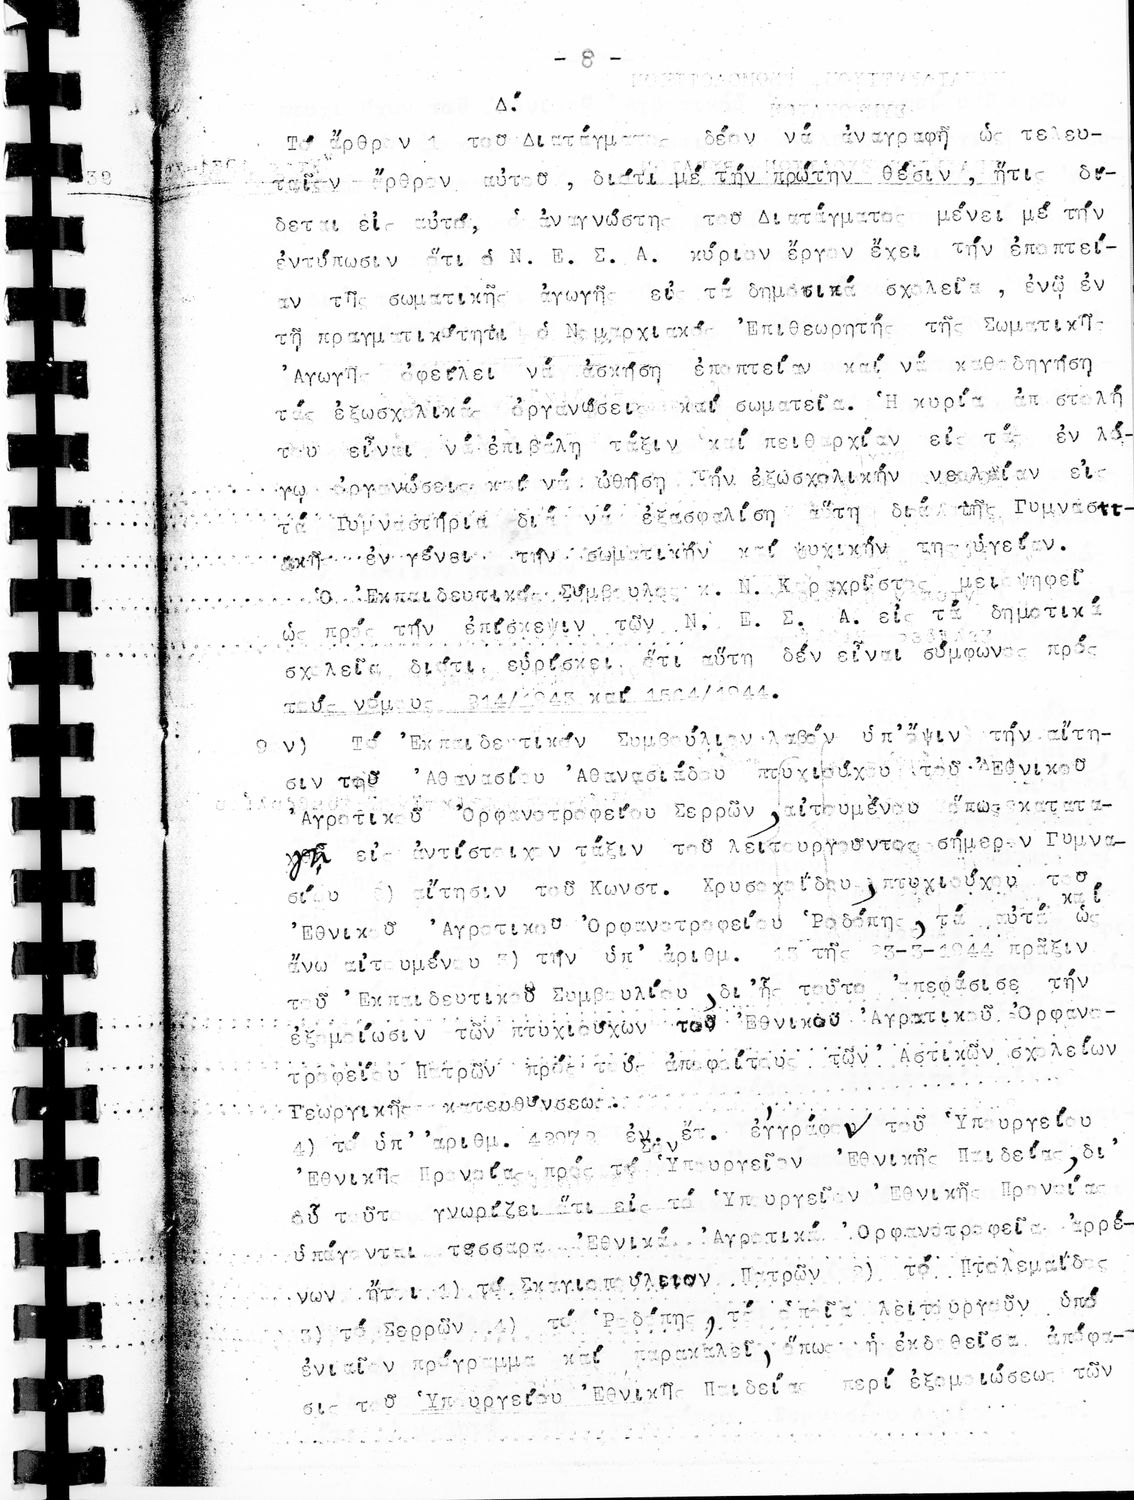 - 8 -
Δ.
Τό ἄρθρον 1 τοῦ Διατάγματος δέον νά ἀναγραφῇ ὡς τελευ-
ταῖον ἄρθρον αὐτοῦ , διότι μέ τήν πρώτην θέσιν , ἥτις δί-
δεται εἰς αὐτό, ὁ ἀναγνώστης τοῦ Διατάγματος μένει μέ τήν
ἐντύπωσιν ὅτι ὁ Ν. Ε. Σ. Α. κύριον ἔργον ἔχει τήν ἐποπτεί-
αν τῆς σωματικῆς ἀγωγῆς εἰς τά δημοτικά σχολεῖα , ἐνῷ ἐν
τῇ πραγματικότητι ὁ Νομαρχιακός Ἐπιθεωρητής τῆς Σωματικῆς
Ἀγωγῆς ὀφείλει νά ἀσκήσῃ ἐποπτείαν καί νά καθοδηγήσῃ
τάς ἐξωσχολικάς ὀργανώσεις καί σωματεῖα. Ἡ κυρία ἀποστολή
του εἶναι νά ἐπιβάλῃ τάξιν καί πειθαρχίαν εἰς τάς ἐν λό-
γῳ ὀργανώσεις καί νά ὠθήσῃ τήν ἐξωσχολικήν νεολαίαν εἰς
τά Γυμναστήρια διά νά ἐξασφαλίσῃ αὕτη διά τῆς Γυμναστι-
κῆς ἐν γένει τήν σωματικήν καί ψυχικήν της ὑγείαν.
Ὁ Ἐκπαιδευτικός Σύμβουλος κ. Ν. Καραχρῖστος μειοψηφεῖ
ὡς πρός τήν ἐπίσκεψιν τῶν Ν. Ε. Σ. Α. εἰς τά δημοτικά
σχολεῖα διότι εὑρίσκει ὅτι αὕτη δέν εἶναι σύμφωνος πρός
τούς νόμους 914/1943 καί 1504/1944.
9 ν) Τό Ἐκπαιδευτικόν Συμβούλιον λαβόν ὑπ' ὄψιν τήν αἴτη-
σιν τοῦ Ἀθανασίου Ἀθανασιάδου πτυχιούχου τοῦ Ἐθνικοῦ
Ἀγροτικοῦ Ὀρφανοτροφείου Σερρῶν, αἰτουμένου ὅπως κατατα-
γῇ εἰς ἀντίστοιχον τάξιν τοῦ λειτουργοῦντος σήμερον Γυμνα-
σίου αἴτησιν τοῦ Κωνστ. Χρυσοχοΐδου, πτυχιούχου τοῦ
καί
Ἐθνικοῦ Ἀγροτικοῦ Ὀρφανοτροφείου Ῥοδόπης, τά αὐτά ὡς
ἄνω αἰτουμένου 3) τήν ὑπ' ἀριθμ. 13 τῆς 23-3-1944 πρᾶξιν
τοῦ Ἐκπαιδευτικοῦ Συμβουλίου, δι' ἧς τοῦτο ἀπεφάσισε τήν
ἐξομοίωσιν τῶν πτυχιούχων τοῦ Ἐθνικοῦ Ἀγροτικοῦ Ὀρφανο-
τροφείου Πατρῶν πρός τούς ἀποφοίτους τῶν Ἀστικῶν σχολείων
Γεωργικῆς κατευθύνσεως.
4) τό ὑπ' ἀριθμ. ἐν. ἔτ. ἔγγραφον τοῦ Ὑπουργείου
Ἐθνικῆς Προνοίας πρός τό Ὑπουργεῖον Ἐθνικῆς Παιδείας, δι'
οὗ τοῦτο γνωρίζει ὅτι εἰς τό Ὑπουργεῖον Ἐθνικῆς Προνοίας
ὑπάγονται τέσσαρα Ἐθνικά Ἀγροτικά Ὀρφανοτροφεῖα ἀρρέ-
νων ἤτοι 1) τό Σκαγιοπούλειον Πατρῶν 2) τό Πτολεμαΐδος
3) τό Σερρῶν 4) τό Ῥοδόπης, τά ὁποῖα λειτουργοῦν ὑπό
ἑνιαῖον πρόγραμμα καί παρακαλεῖ, ὅπως ἡ ἐκδοθεῖσα ἀπόφα-
σις τοῦ Ὑπουργείου Ἐθνικῆς Παιδείας περί ἐξομοιώσεως τῶν